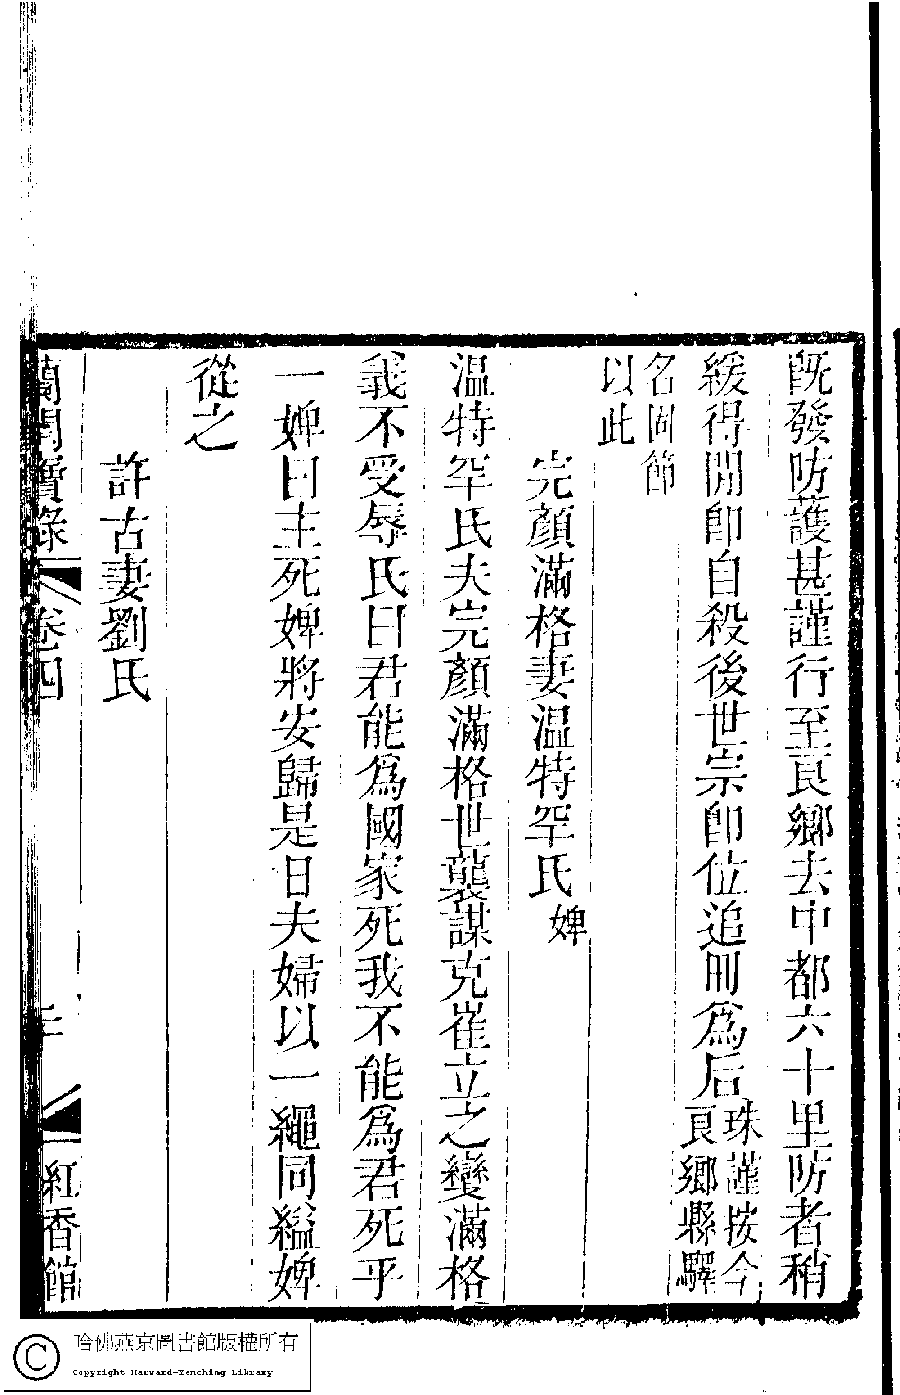 既發防護甚謹行至良鄉去中都六十里防者稍
緩得閒卽自殺後世宗卽位追冊爲后珠謹按今良鄉縣驛
名固節以此
完顏滿格妻温特罕氏婢
温特罕氏夫完顏滿格世襲謀克崔立之變滿格
義不受辱氏曰君能爲國家死我不能爲君死乎
一婢曰主死婢將安歸是日夫婦以一繩同縊婢
從之
許古妻劉氏
蘭閨寶錄
卷四
紅香館
哈佛燕京圖書館版權所有
Copyright Harvard-Yenching Library